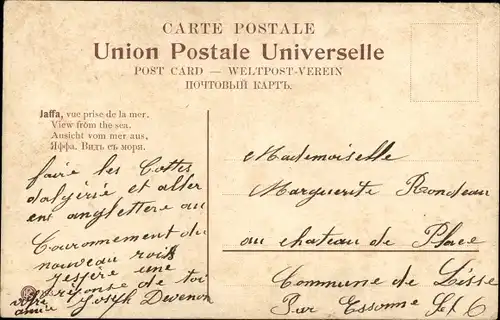 CARTE POSTALE
Union Postale Universelle
POST CARD — WELTPOST-VEREIN
ПОЧТОВЫЙ КАРТЪ.
Jaffa, vue prise de la mer.
View from the sea.
Ansicht vom mer aus.
Яффа. Видъ съ моря.
faire les Cottes
dalgérie et aller
ent anglettere au
Couronnement du
nouveau rois
jespère une
réponse de toi
votre amie Joseph Devenon
Mademoiselle
Marguerite Rondeau
au chateau de Place
Commune de Lisse
Par Essonne Set O